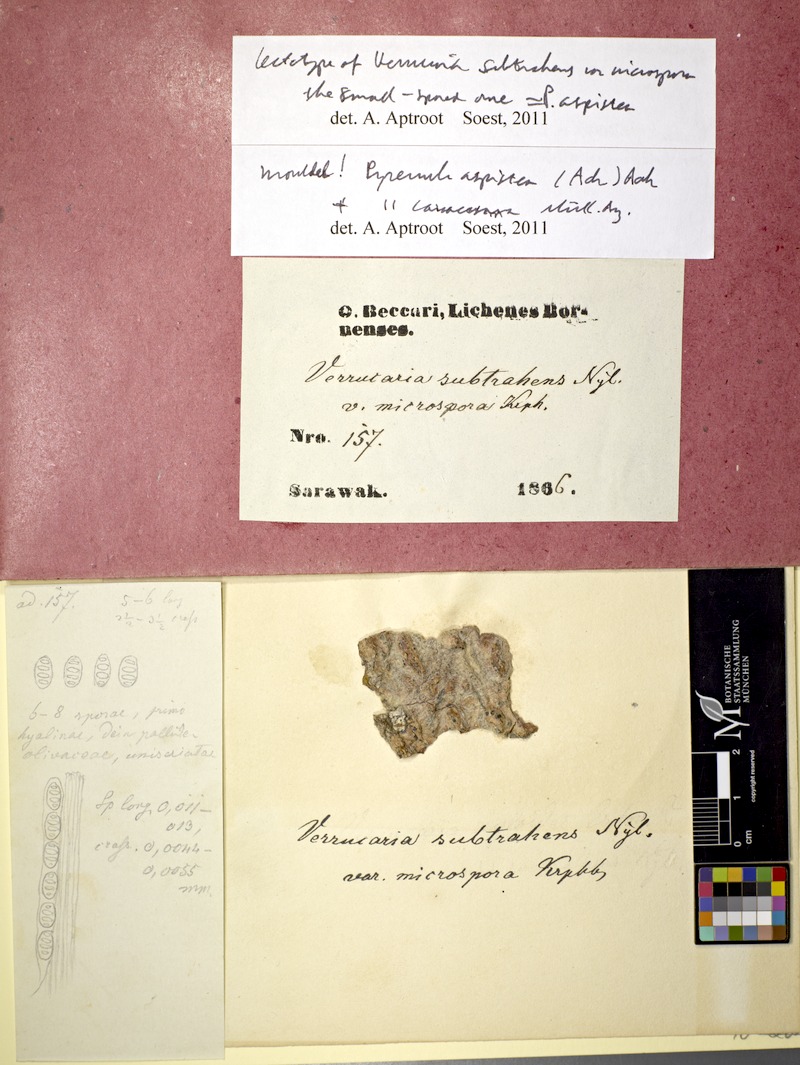 lectotype of Verrucaria subtrahens var microspora
the small-spored one = P. aspistea
det. A. Aptroot Soest, 2011
moulded! Pyrenula aspistea (Ach) Ach
+ "
det. A. Aptroot Soest, 2011
O. Beccari, Lichenes Bor-
nenses.
Verrucaria subtrahens Nyl.
v. microspora Krph.
Nro. 157.
Sarawak. 1866.
ad. 157.
5-6 long
crass
6-8 sporae, primo
hyalinae, dein pallide
olivaceae, uniseriatae
Sp long. 0,011-
013,
crass. 0,0044-
0,0055
mm.
Verrucaria subtrahens Nyl.
var. microspora Krphb
BOTANISCHE
STAATSSAMMLUNG
MÜNCHEN
copyright reserved
0 1 2
cm